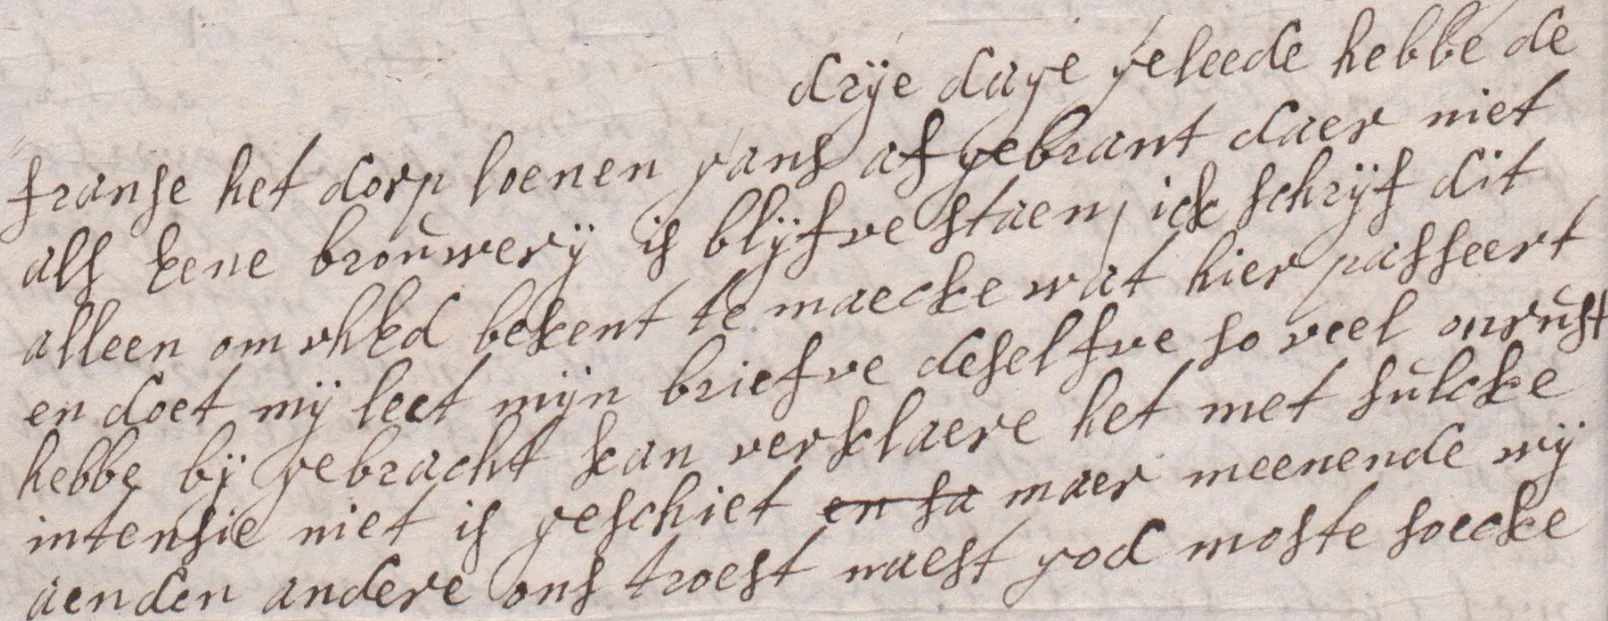 drÿe dage geleede hebbe de
franse het dorp loenen gans af gebrant daer niet
als eene brouwerÿ is blÿfve staen, ick schrÿf dit
alleen om uhEd bekent te maecke wat hier passeert
en doet mÿ leet mÿn briefve deselfve so veel onrust
hebbe bÿ gebracht kan verklaere het met sulcke
intensie niet is geschiet en sa maer meenende wÿ
aenden andere ons troest naest god moste soecke